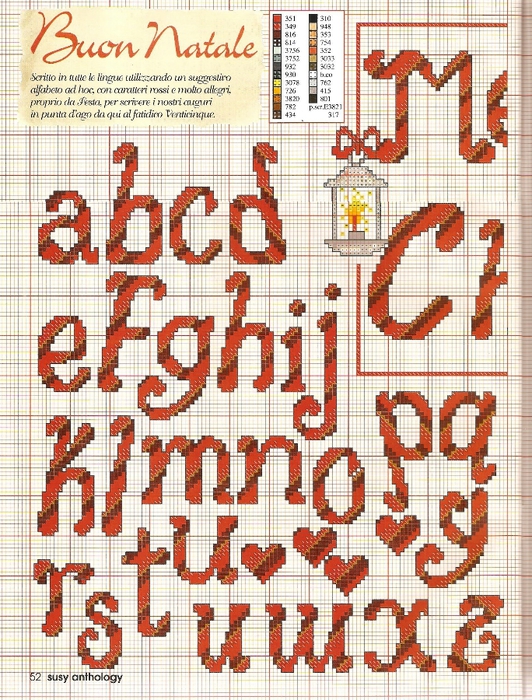 Buon Natale
Scritto in tutte le lingue utilizzando un suggestivo
alfabeto ad hoc, con caratteri rossi e molto allegri,
proprio da Festa, per scrivere i nostri auguri
in punta d'ago da qui al fatidico Venticinque.
351 310
349 948
816 353
814 754
3756 352
3752 3033
932 3032
930 b.co
3078 762
726 415
3820 801
782 p.scr.E3821
434 317
M
Ch
a b c d
e f g h i j
k l m n o p q
r s t u y
u w x z
52 susy anthology